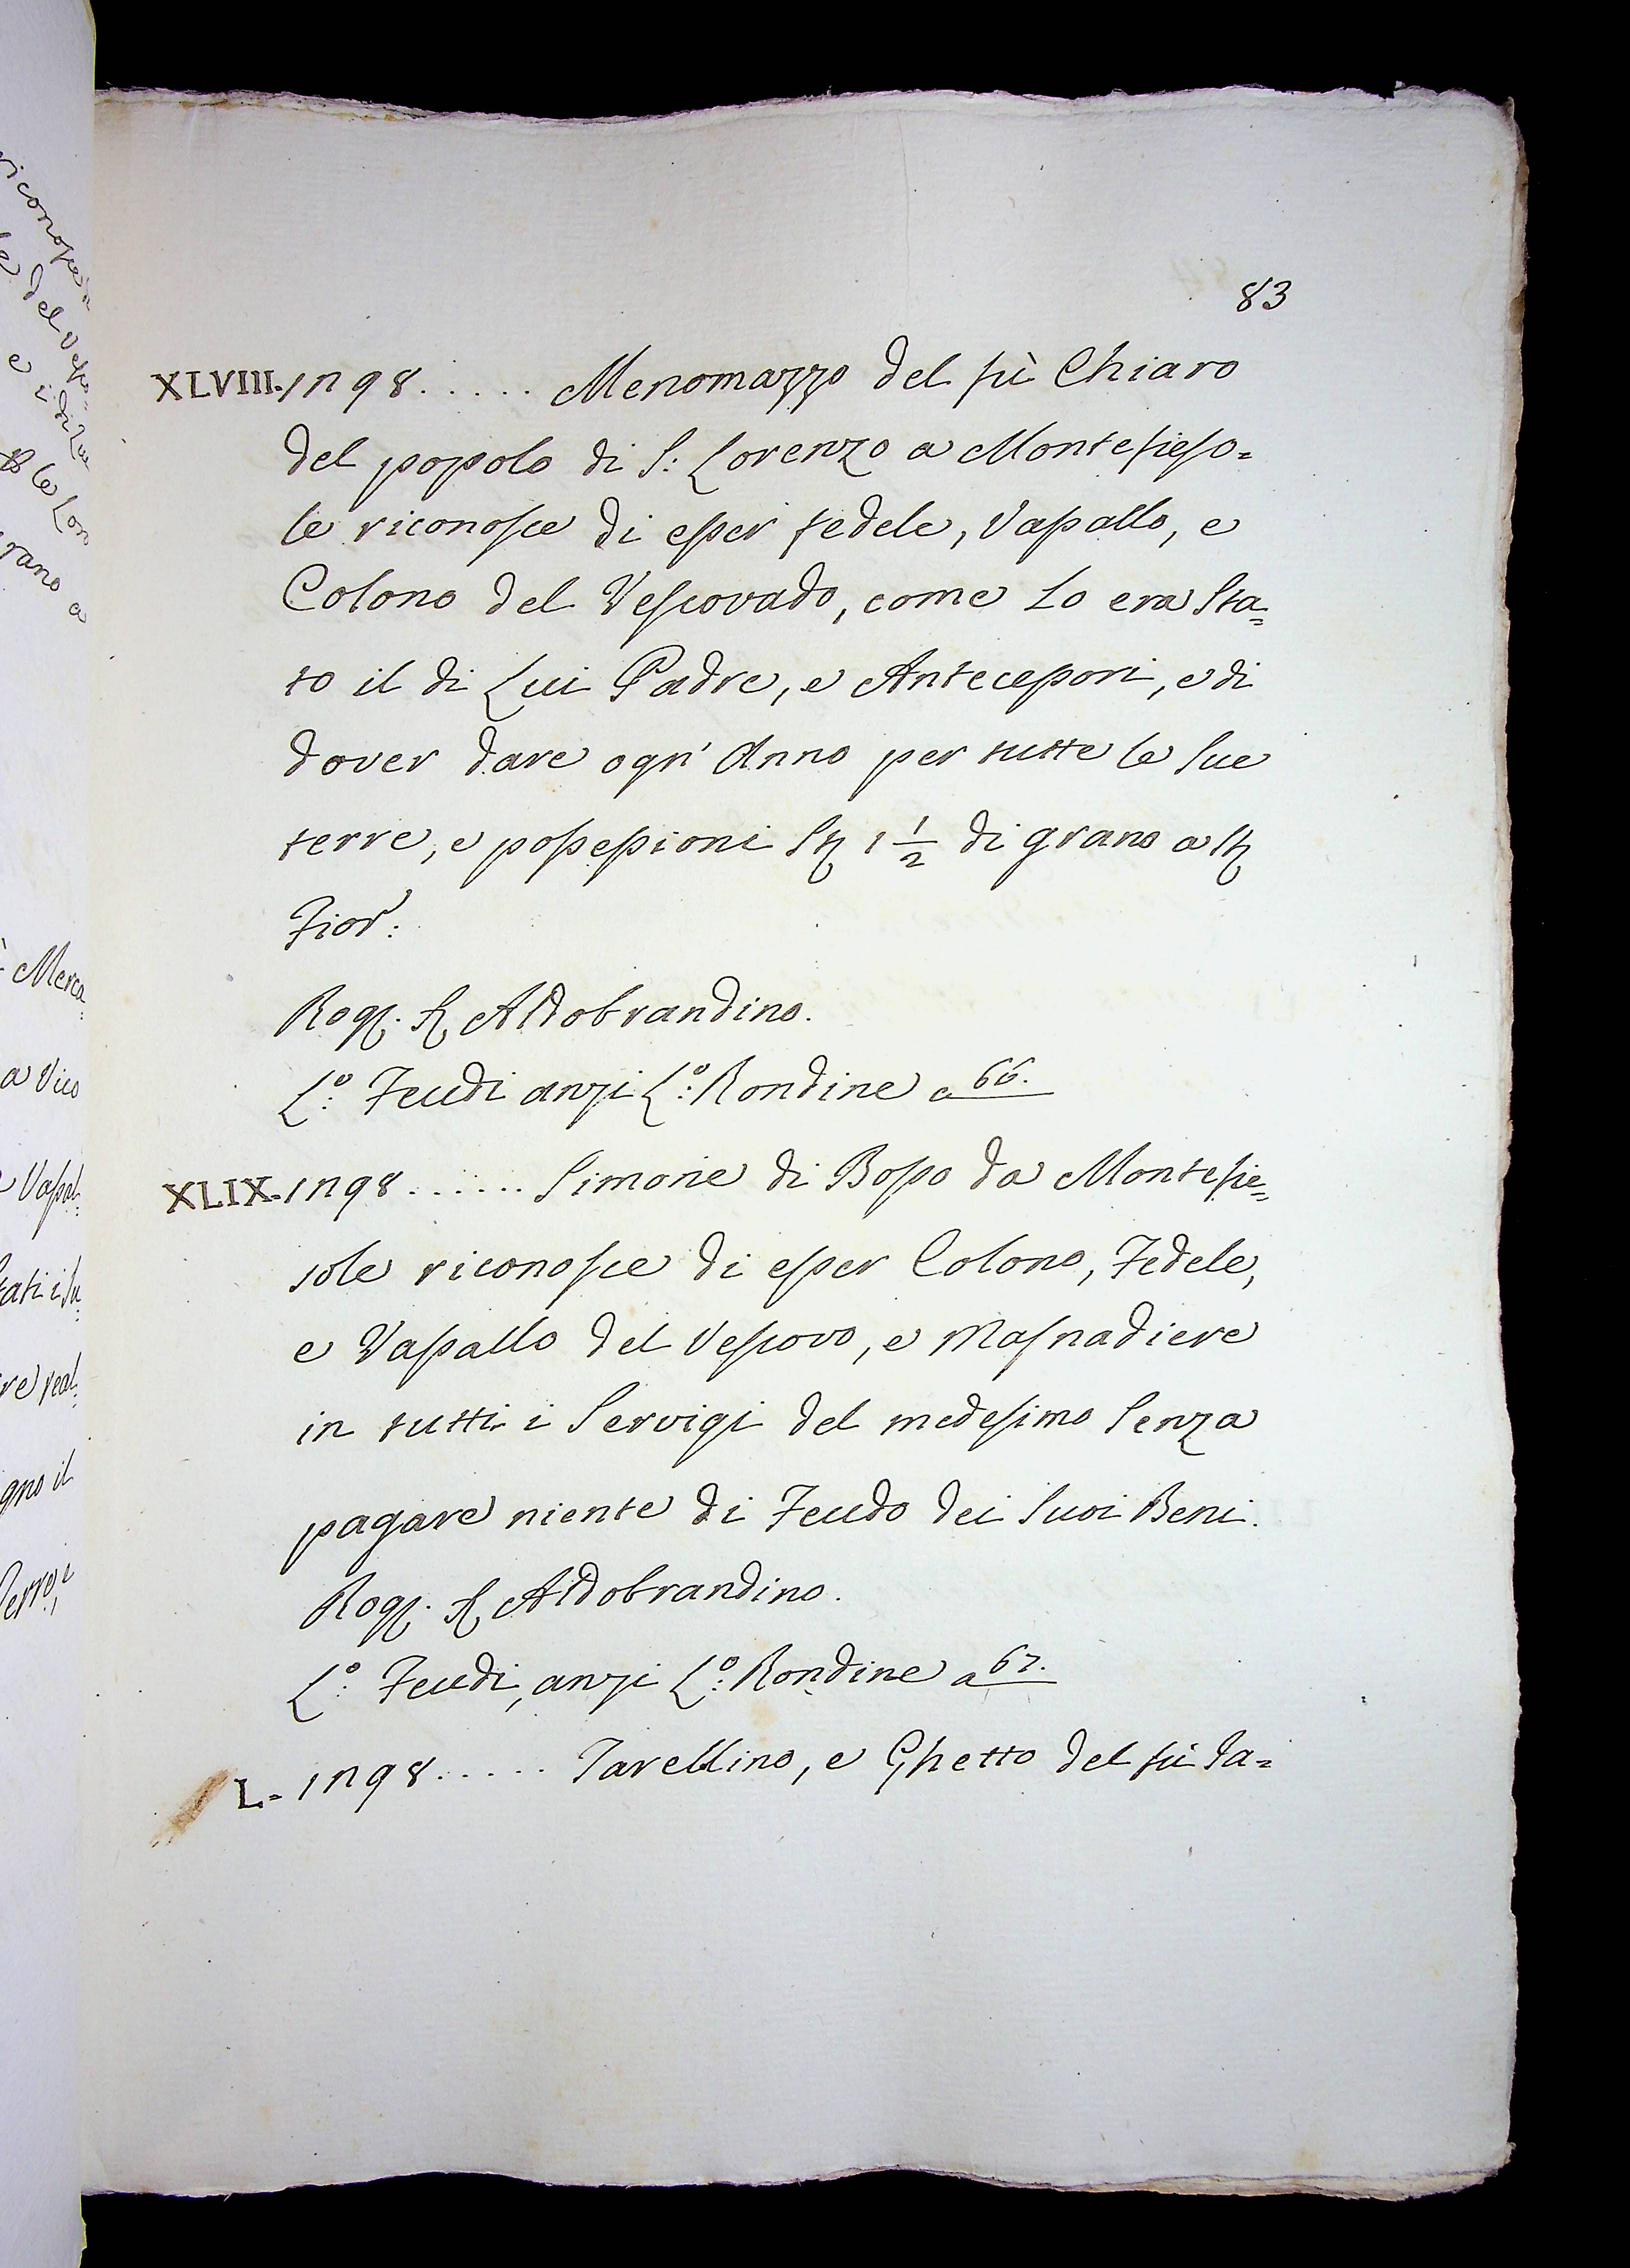 83
XLVIII. 1298..... Menomazzo del fù Chiaro
del popolo di S: Lorenzo a Montefieso=
le riconosce di esser fedele, Vassallo, e
Colono del Vescovado, come Lo era Sta=
to il di Lui Padre, e Antecessori, e di
dover dare ogn' Anno per tutte le Sue
terre, e possessioni St 1 1/2 di grano a St
Fior:
Rog. S Aldobrandino.
L:o Feudi anzi L:o Rondine a 66.
XLIX. 1298...... Simone di Bosso da Montefie=
sole riconosce di esser Colono, Fedele,
e Vassallo del Vescovo, e Masnadiere
in tutti i Servigi del medesimo Senza
pagare niente di Feudo dei Suoi Beni.
Rog. S Aldobrandino.
L:o Feudi, anzi L:o Rondine a 67.
L. 1298..... Tavellino, e Ghetto del fù Ta=